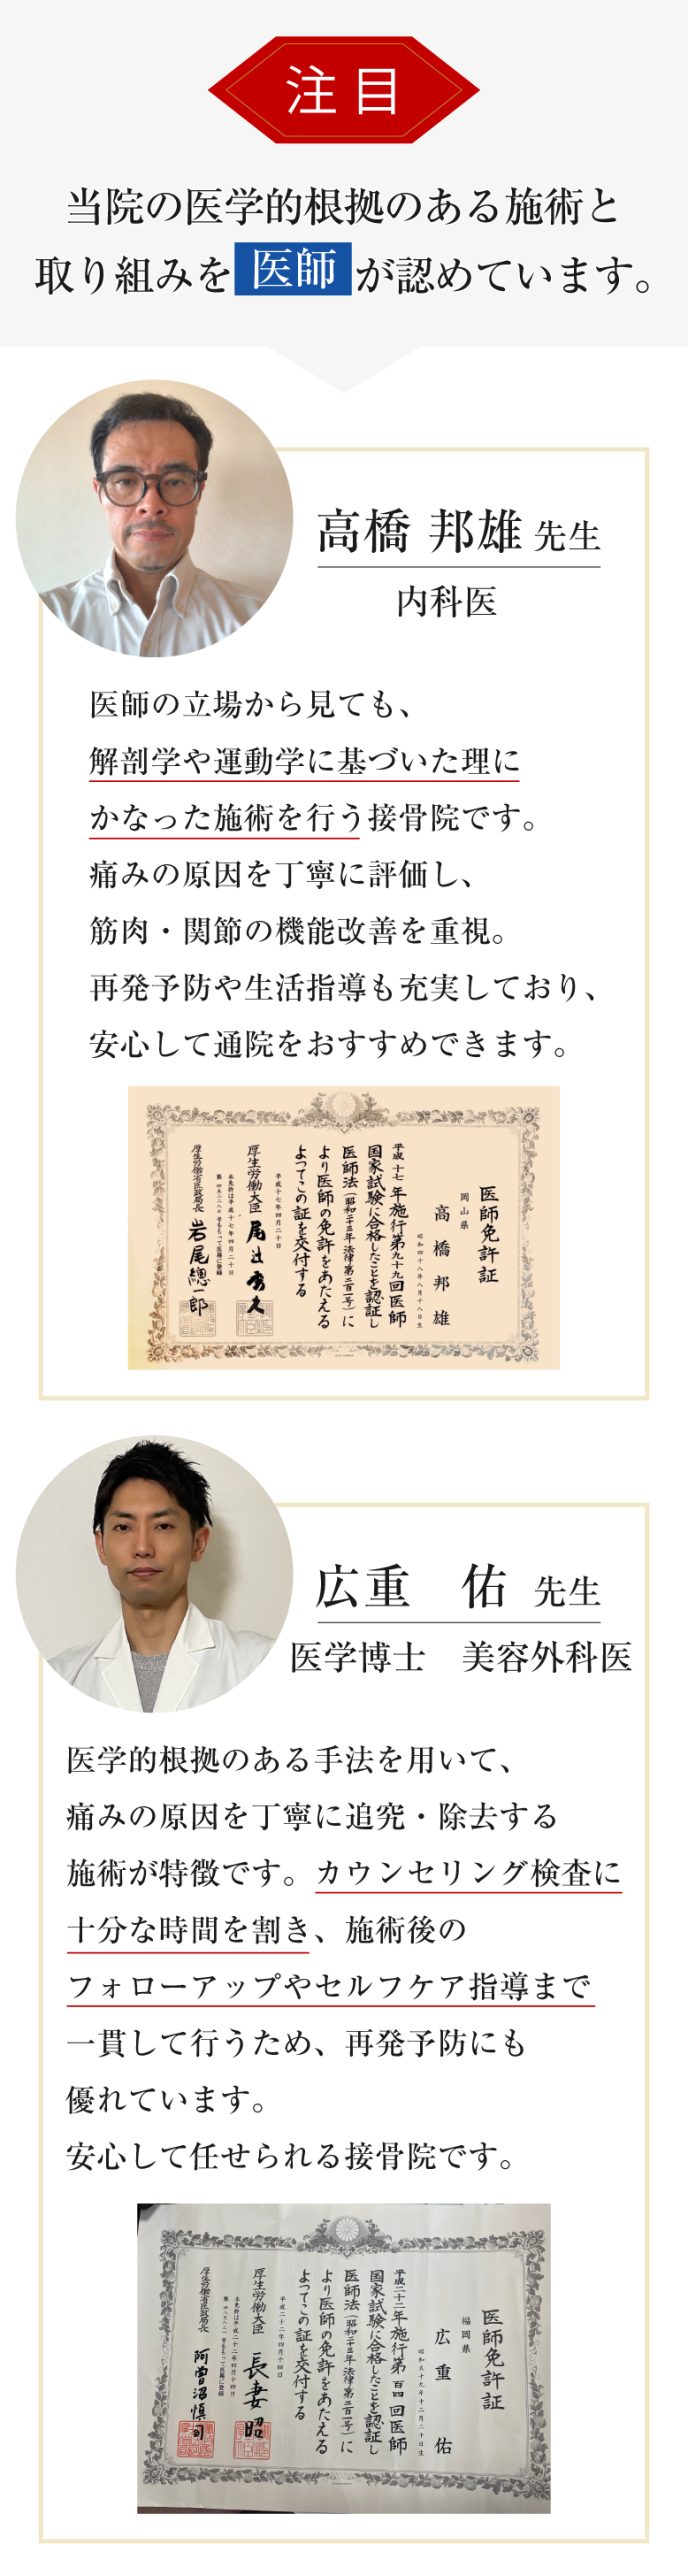 注目
当院の医学的根拠のある施術と
取り組みを医師が認めています。
高橋 邦雄 先生
内科医
医師の立場から見ても、
解剖学や運動学に基づいた理に
かなった施術を行う接骨院です。
痛みの原因を丁寧に評価し、
筋肉・関節の機能改善を重視。
再発予防や生活指導も充実しており、
安心して通院をおすすめできます。
医師免許証
岡山県
高橋邦雄
昭和四十八年八月十八日生
平成十七年施行第九十九回医師
国家試験に合格したことを認証し
医師法(昭和二十三年法律第二百一号)に
より医師の免許をあたえる
よってこの証を交付する
平成十七年四月二十日
厚生労働大臣 尾辻秀久
厚生労働省医政局長 岩尾總一郎
広重 佑 先生
医学博士 美容外科医
医学的根拠のある手法を用いて、
痛みの原因を丁寧に追究・除去する
施術が特徴です。カウンセリング検査に
十分な時間を割き、施術後の
フォローアップやセルフケア指導まで
一貫して行うため、再発予防にも
優れています。
安心して任せられる接骨院です。
医師免許証
福岡県
広重佑
昭和五十九年十二月二十日生
平成二十二年施行第百四回医師
国家試験に合格したことを認証し
医師法(昭和二十三年法律第二百一号)に
より医師の免許をあたえる
よってこの証を交付する
平成二十二年四月十四日
厚生労働大臣 長妻昭
厚生労働省医政局長 阿曽沼慎司